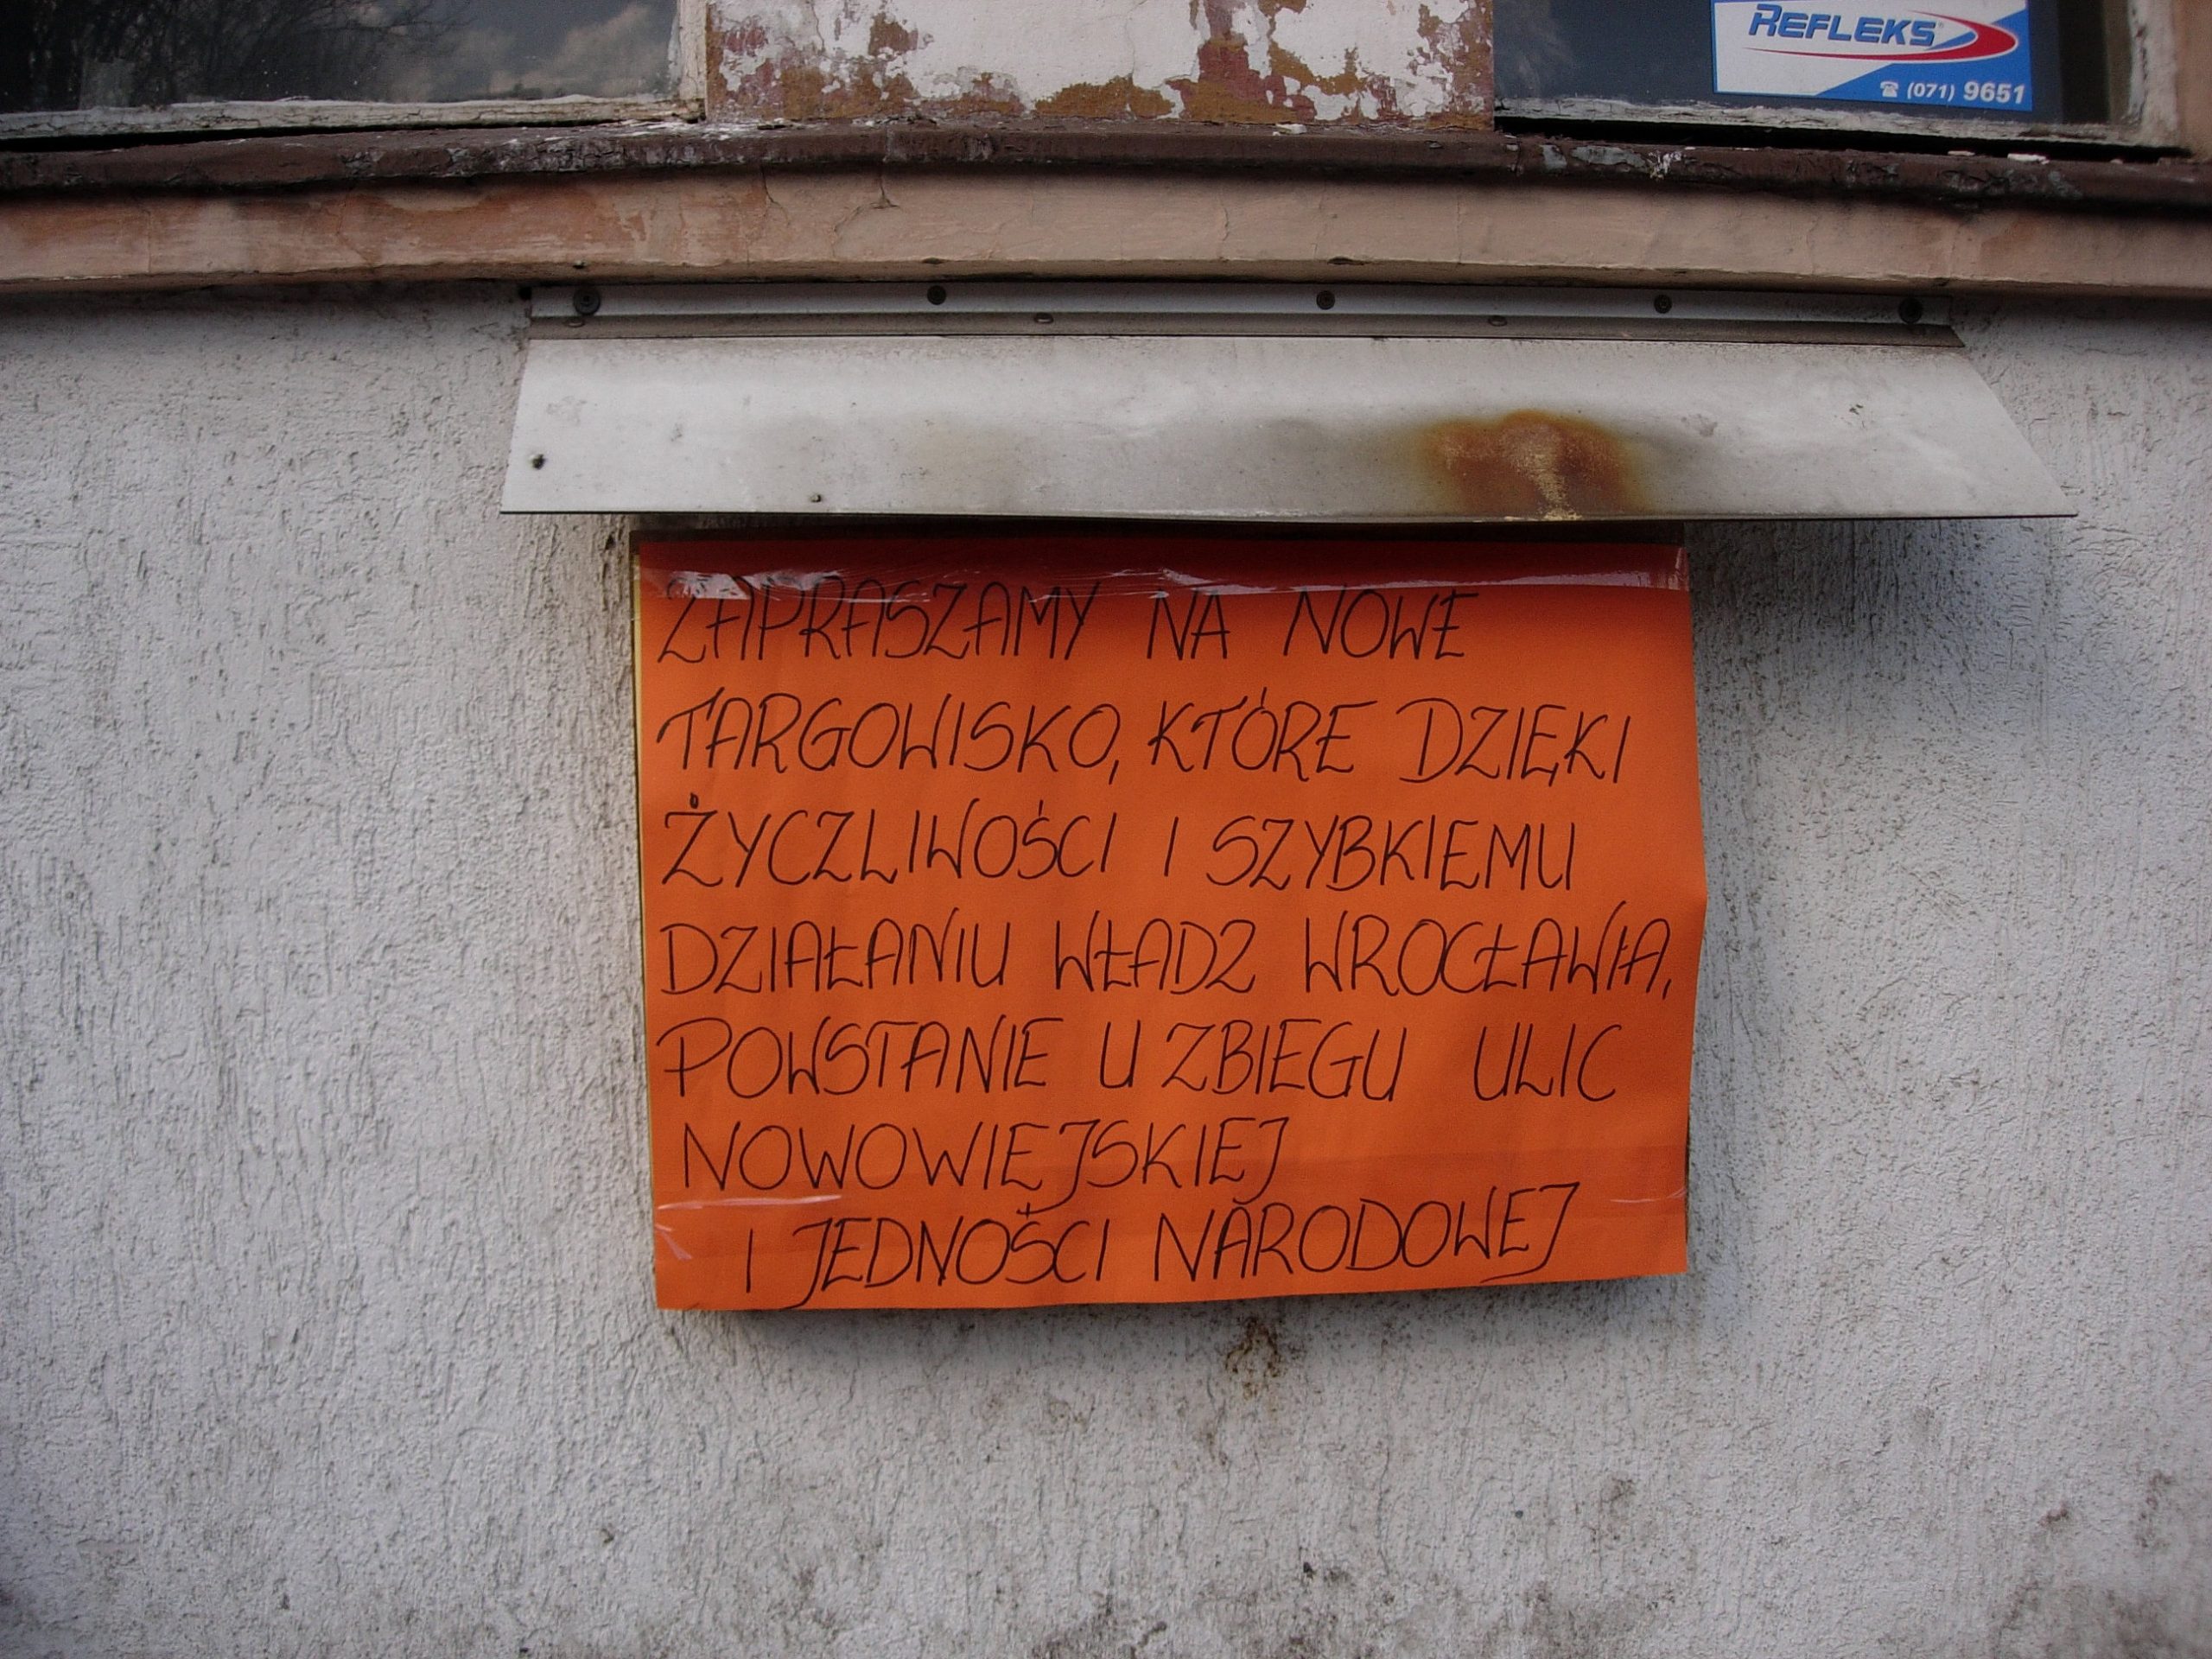 REFLEKS
☎ (071) 9651
ZAPRASZAMY NA NOWE
TARGOWISKO, KTÓRE DZIĘKI
ŻYCZLIWOŚCI I SZYBKIEMU
DZIAŁANIU WŁADZ WROCŁAWIA,
POWSTANIE U ZBIEGU ULIC
NOWOWIEJSKIEJ
I JEDNOŚCI NARODOWEJ